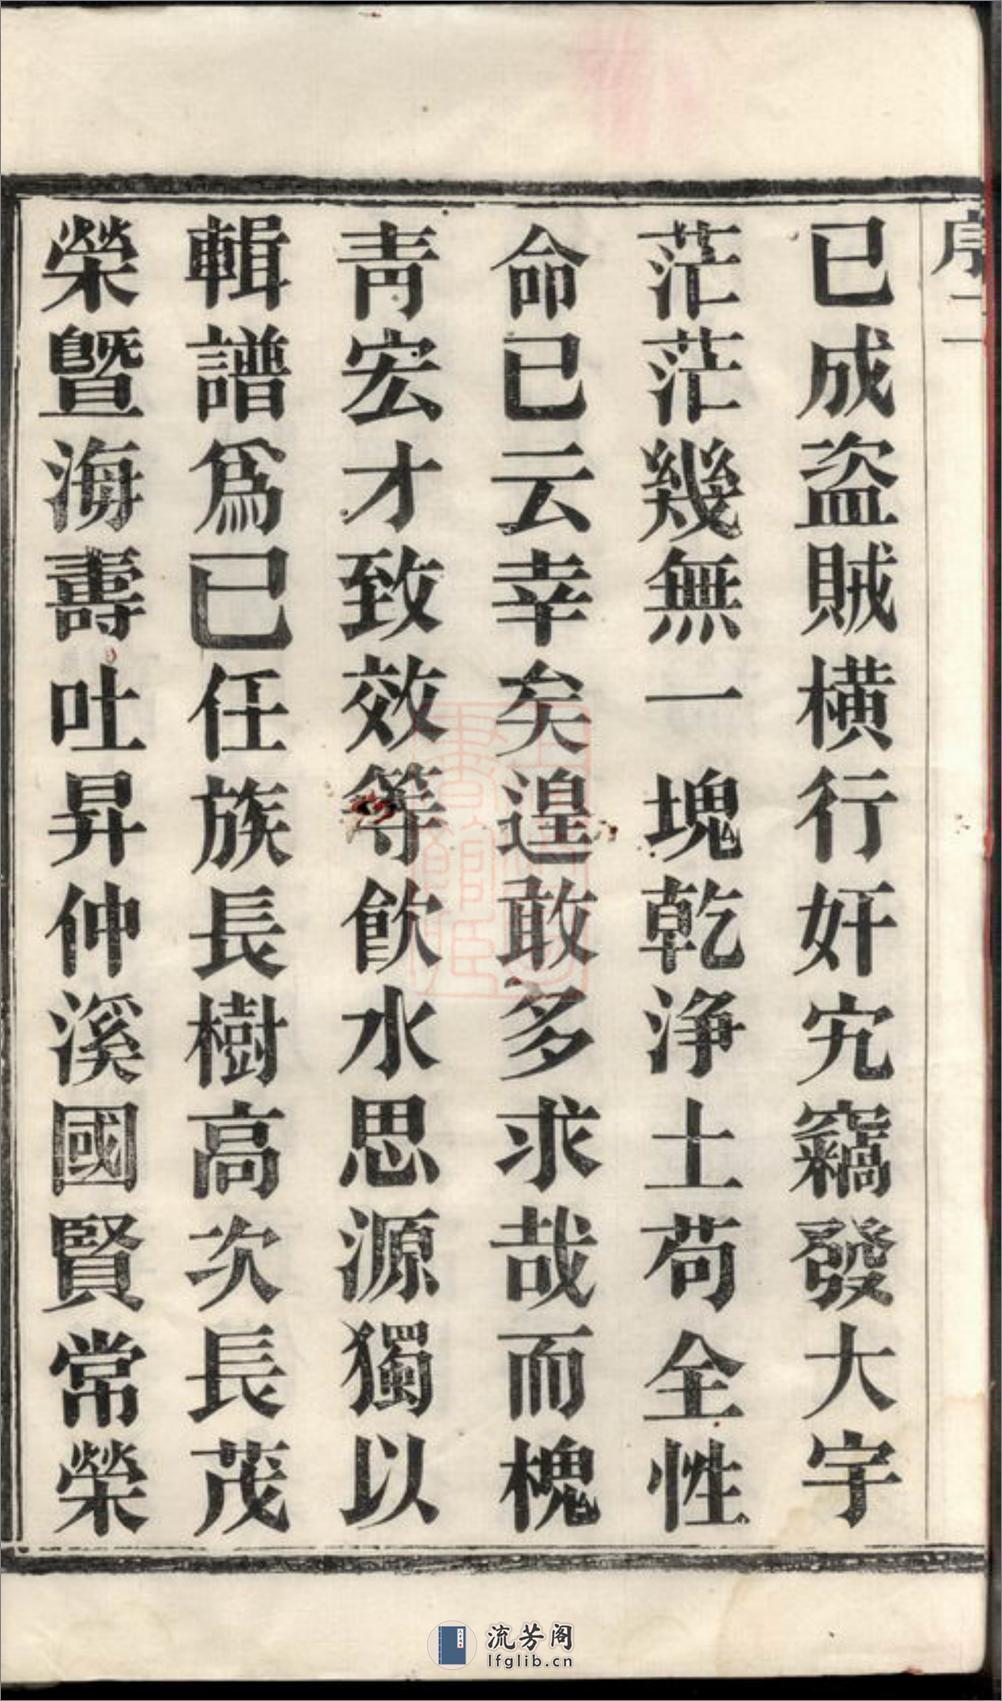 序 二
已成盗賊橫行奸宄竊發大宇
茫茫幾無一塊乾净土苟全性
命已云幸矣遑敢多求哉而槐
靑宏才致效等飮水思源獨以
輯譜爲已任族長樹高次長茂
榮暨海壽吐昇仲溪國賢常榮
流芳阁
lfglib.cn